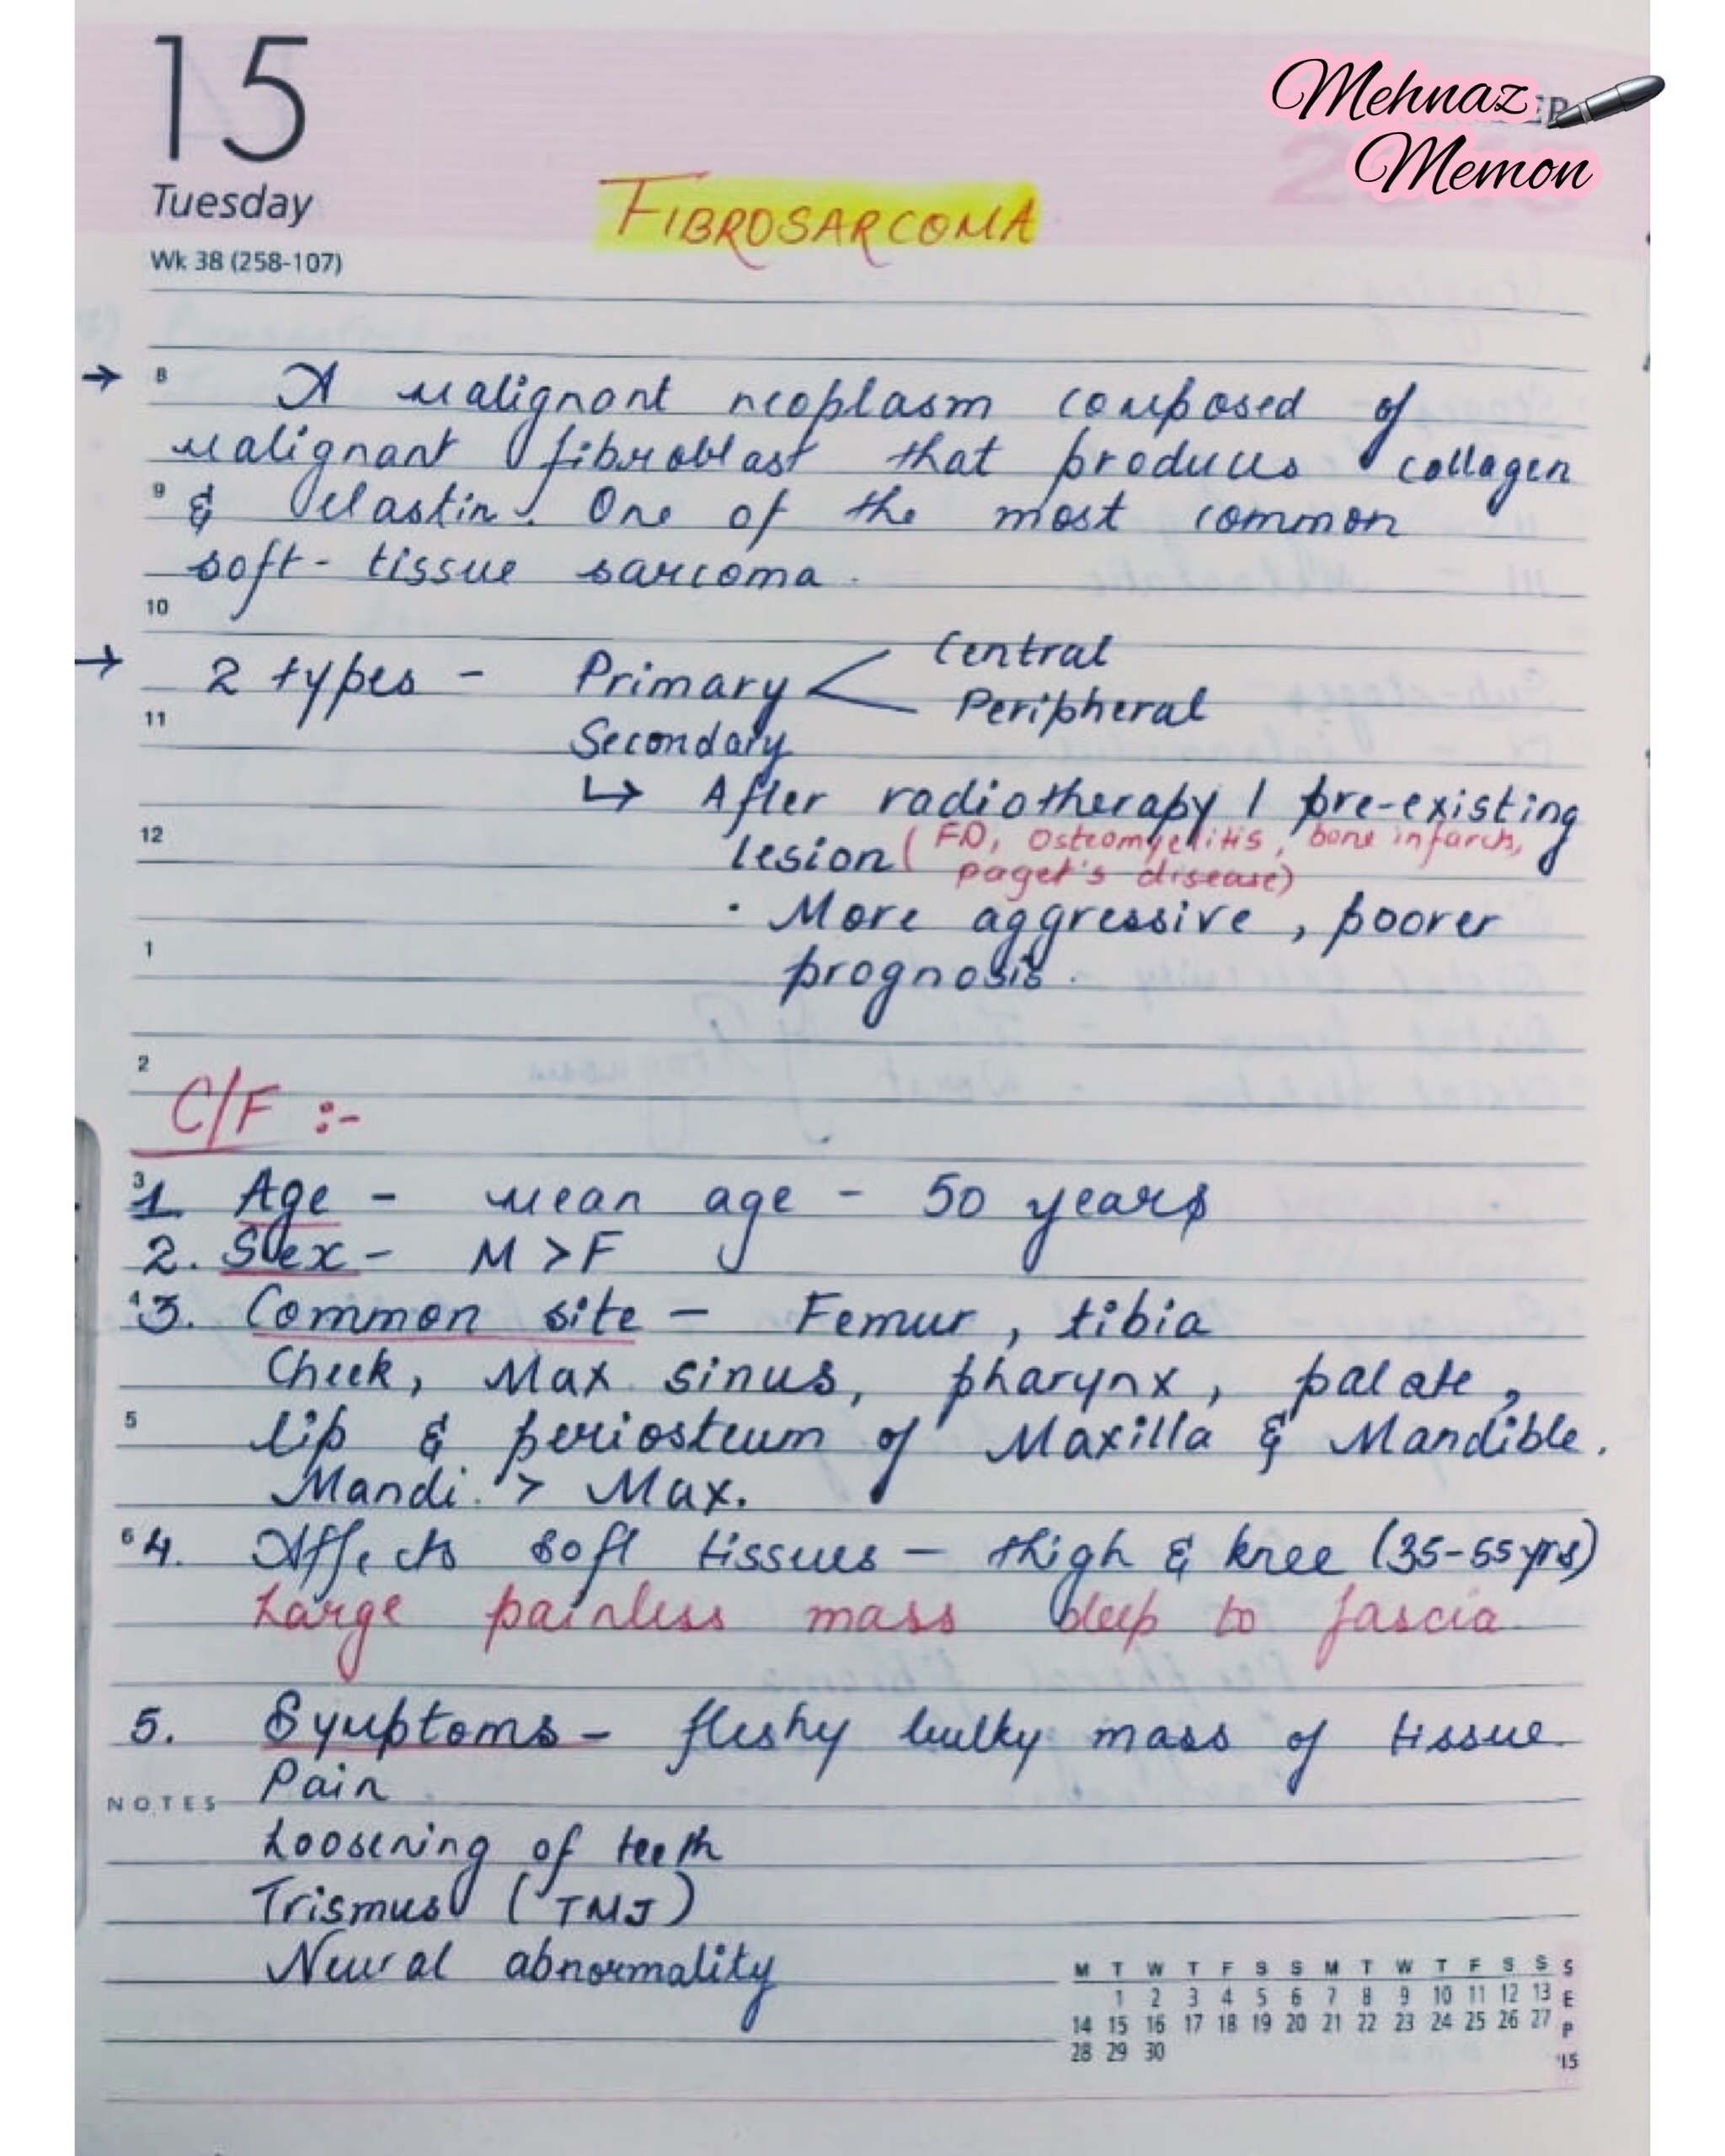 15
Tuesday
Wk 38 (258-107)
Mehnaz
Memon
FIBROSARCOMA
→ 8 A malignant neoplasm composed of
malignant fibroblast that produces collagen
9 & elastin. One of the most common
soft-tissue sarcoma.
10
→ 2 types - Primary < Central
Peripheral
11
Secondary
↳ After radiotherapy / pre-existing
12 lesion (FD, Osteomyelitis, bone infarct,
paget's disease)
· More aggressive, poorer
1
prognosis.
2
C/F :-
3
1. Age - mean age - 50 years
2. Sex - M > F
4
3. Common site - Femur, tibia
Cheek, Max sinus, pharynx, palate,
5 lip & periosteum of Maxilla & Mandible.
Mandi. > Max.
6
4. Affects soft tissues - thigh & knee (35-55 yrs)
Large painless mass deep to fascia
5. Symptoms - fleshy bulky mass of tissue
Pain
NOTES
Loosening of teeth
Trismus (TMJ)
Neural abnormality
M T W T F S S M T W T F S S
1 2 3 4 5 6 7 8 9 10 11 12 13
14 15 16 17 18 19 20 21 22 23 24 25 26 27
28 29 30
SEP '15